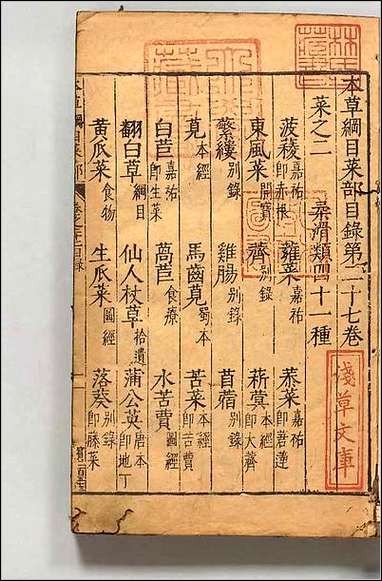 本草綱目菜部目錄第二十七卷
菜之二 柔滑類四十一種
菠薐 嘉祐 即赤根 蕹菜 嘉祐 菾菜 嘉祐 即莙薘
東風菜 開寶 薺 別錄 菥蓂 本經 即大薺
蘩縷 別錄 雞腸 別錄 苜蓿 別錄
莧 本經 馬齒莧 蜀本 苦菜 本經 即苦蕒
白苣 嘉祐 即生菜 萵苣 食療 水苦蕒 圖經
翻白草 綱目 仙人杖草 拾遺 蒲公英 唐本 即地丁
黃瓜菜 食物 生瓜菜 圖經 落葵 別錄 即藤菜
淺草文庫